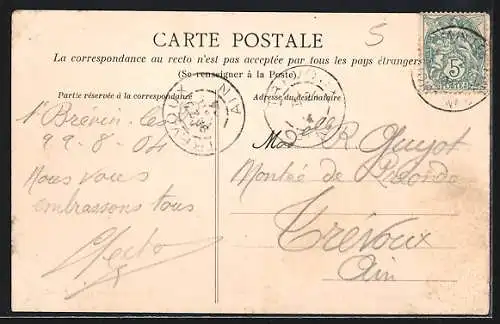 CARTE POSTALE
La correspondance au recto n'est pas acceptée par tous les pays étrangers
(Se renseigner à la Poste)
Partie réservée à la correspondance
Adresse du destinataire
5
5
TREVOUX
AIN
St Brévin les
22-8-04
Nous vous
embrassons tous
Melle R. Guyot
Montée de
Trévoux
Ain